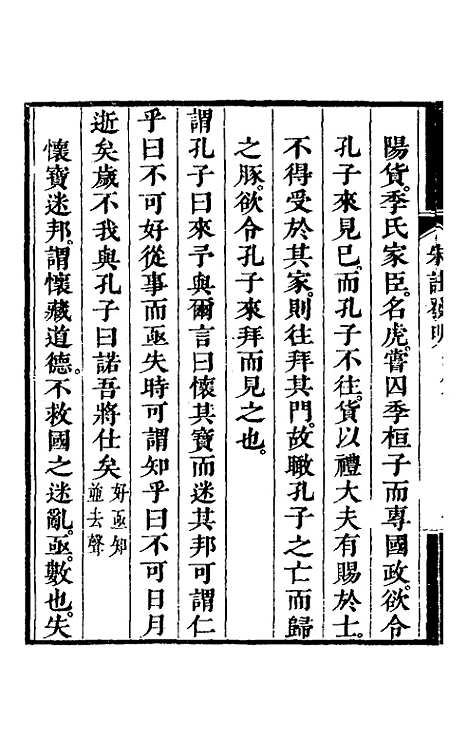 陽貨。季氏家臣。名虎。嘗囚季桓子而專國政。欲令
孔子來見已。而孔子不往。貨以禮大夫有賜於士。
不得受於其家。則往拜其門。故瞰孔子之亡而歸
之豚。欲令孔子來拜而見之也。
謂孔子曰來予與爾言曰懷其寶而迷其邦可謂仁
乎曰不可好從事而亟失時可謂知乎曰不可日月
逝矣歲不我與孔子曰諾吾將仕矣
好亟知
並去聲
懷寶迷邦。謂懷藏道德。不救國之迷亂。亟。數也。失